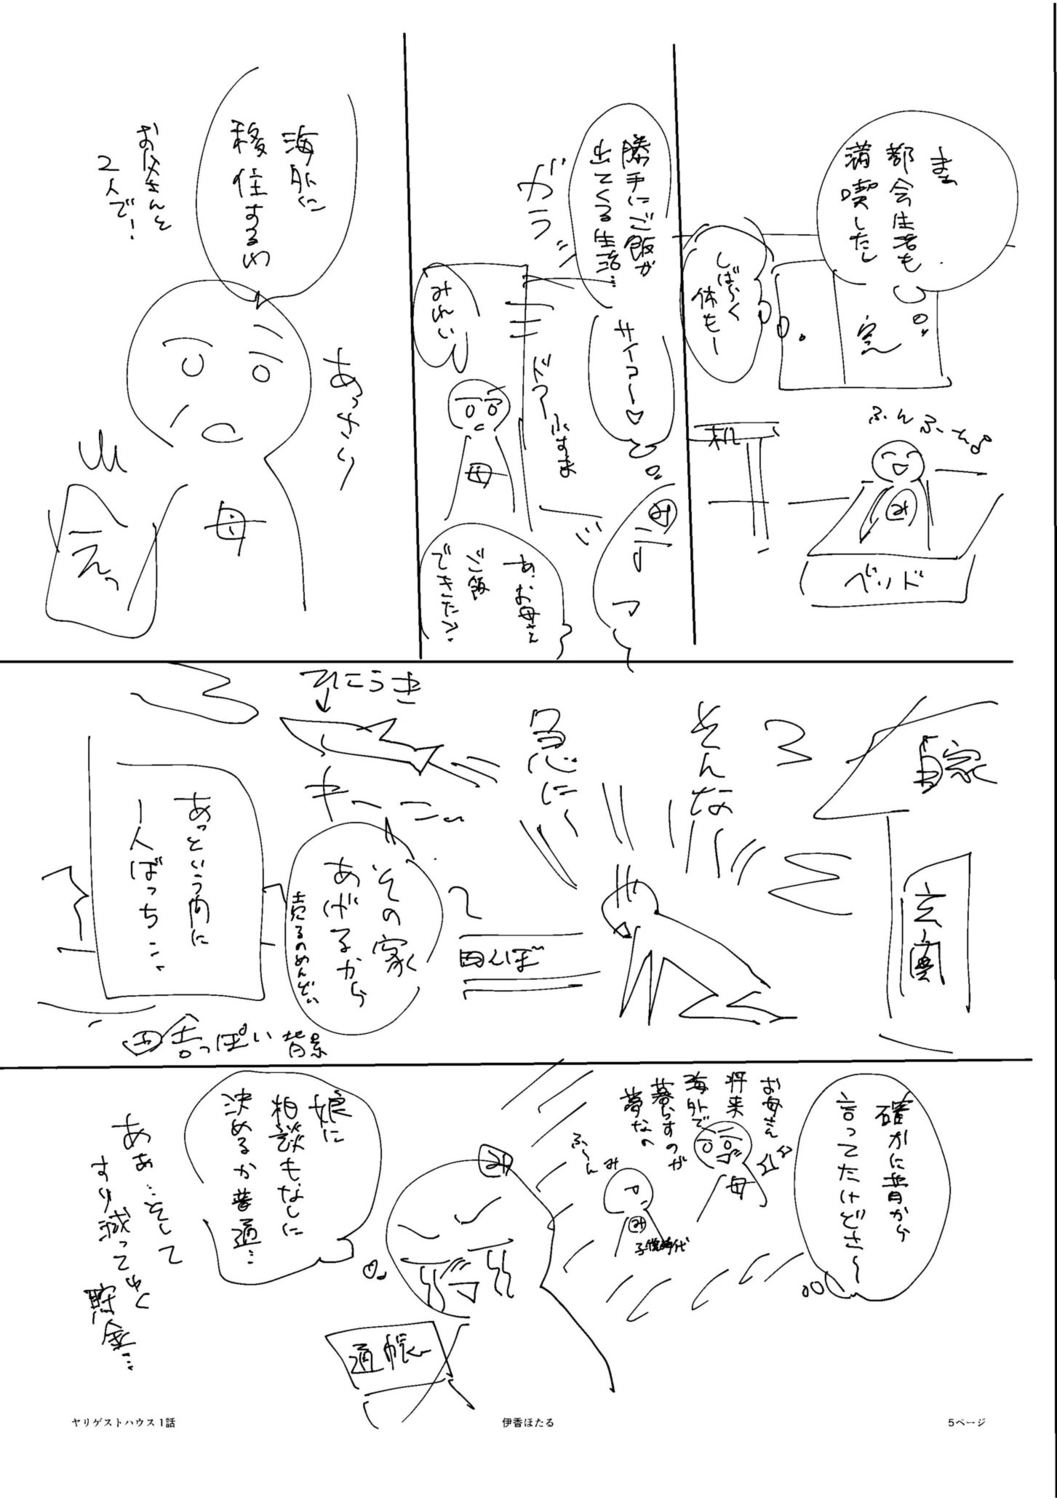 まぁ
都会生活も
満喫したし
しばらく
休もー
窓
机
ふんふーん♪
み
ベッド
勝手にご飯が
出てくる生活…
サイコー♡
ガラッ
みれい
ドアorふすま
母
み
あ、お母さん
ご飯
できた？
海外に
移住するわ
お父さんと
2人で！
あっさり
母
えっ
自家
玄関
そんな
急に～
田んぼ
ひこうき
キーーン
その家
あげるから
売るのめんどい
あっという間に
一人ぼっち…
田舎っぽい背景
確かに昔から
言ってたけどさ～
お母さん
将来
海外で
暮らすのが
夢なの
母
ふーん
み
み
子供時代
み
娘に
相談もなしに
決めるか普通…
通帳
あぁ…そして
すり減ってゆく
貯金…
ヤリゲストハウス1話
伊香ほたる
5ページ